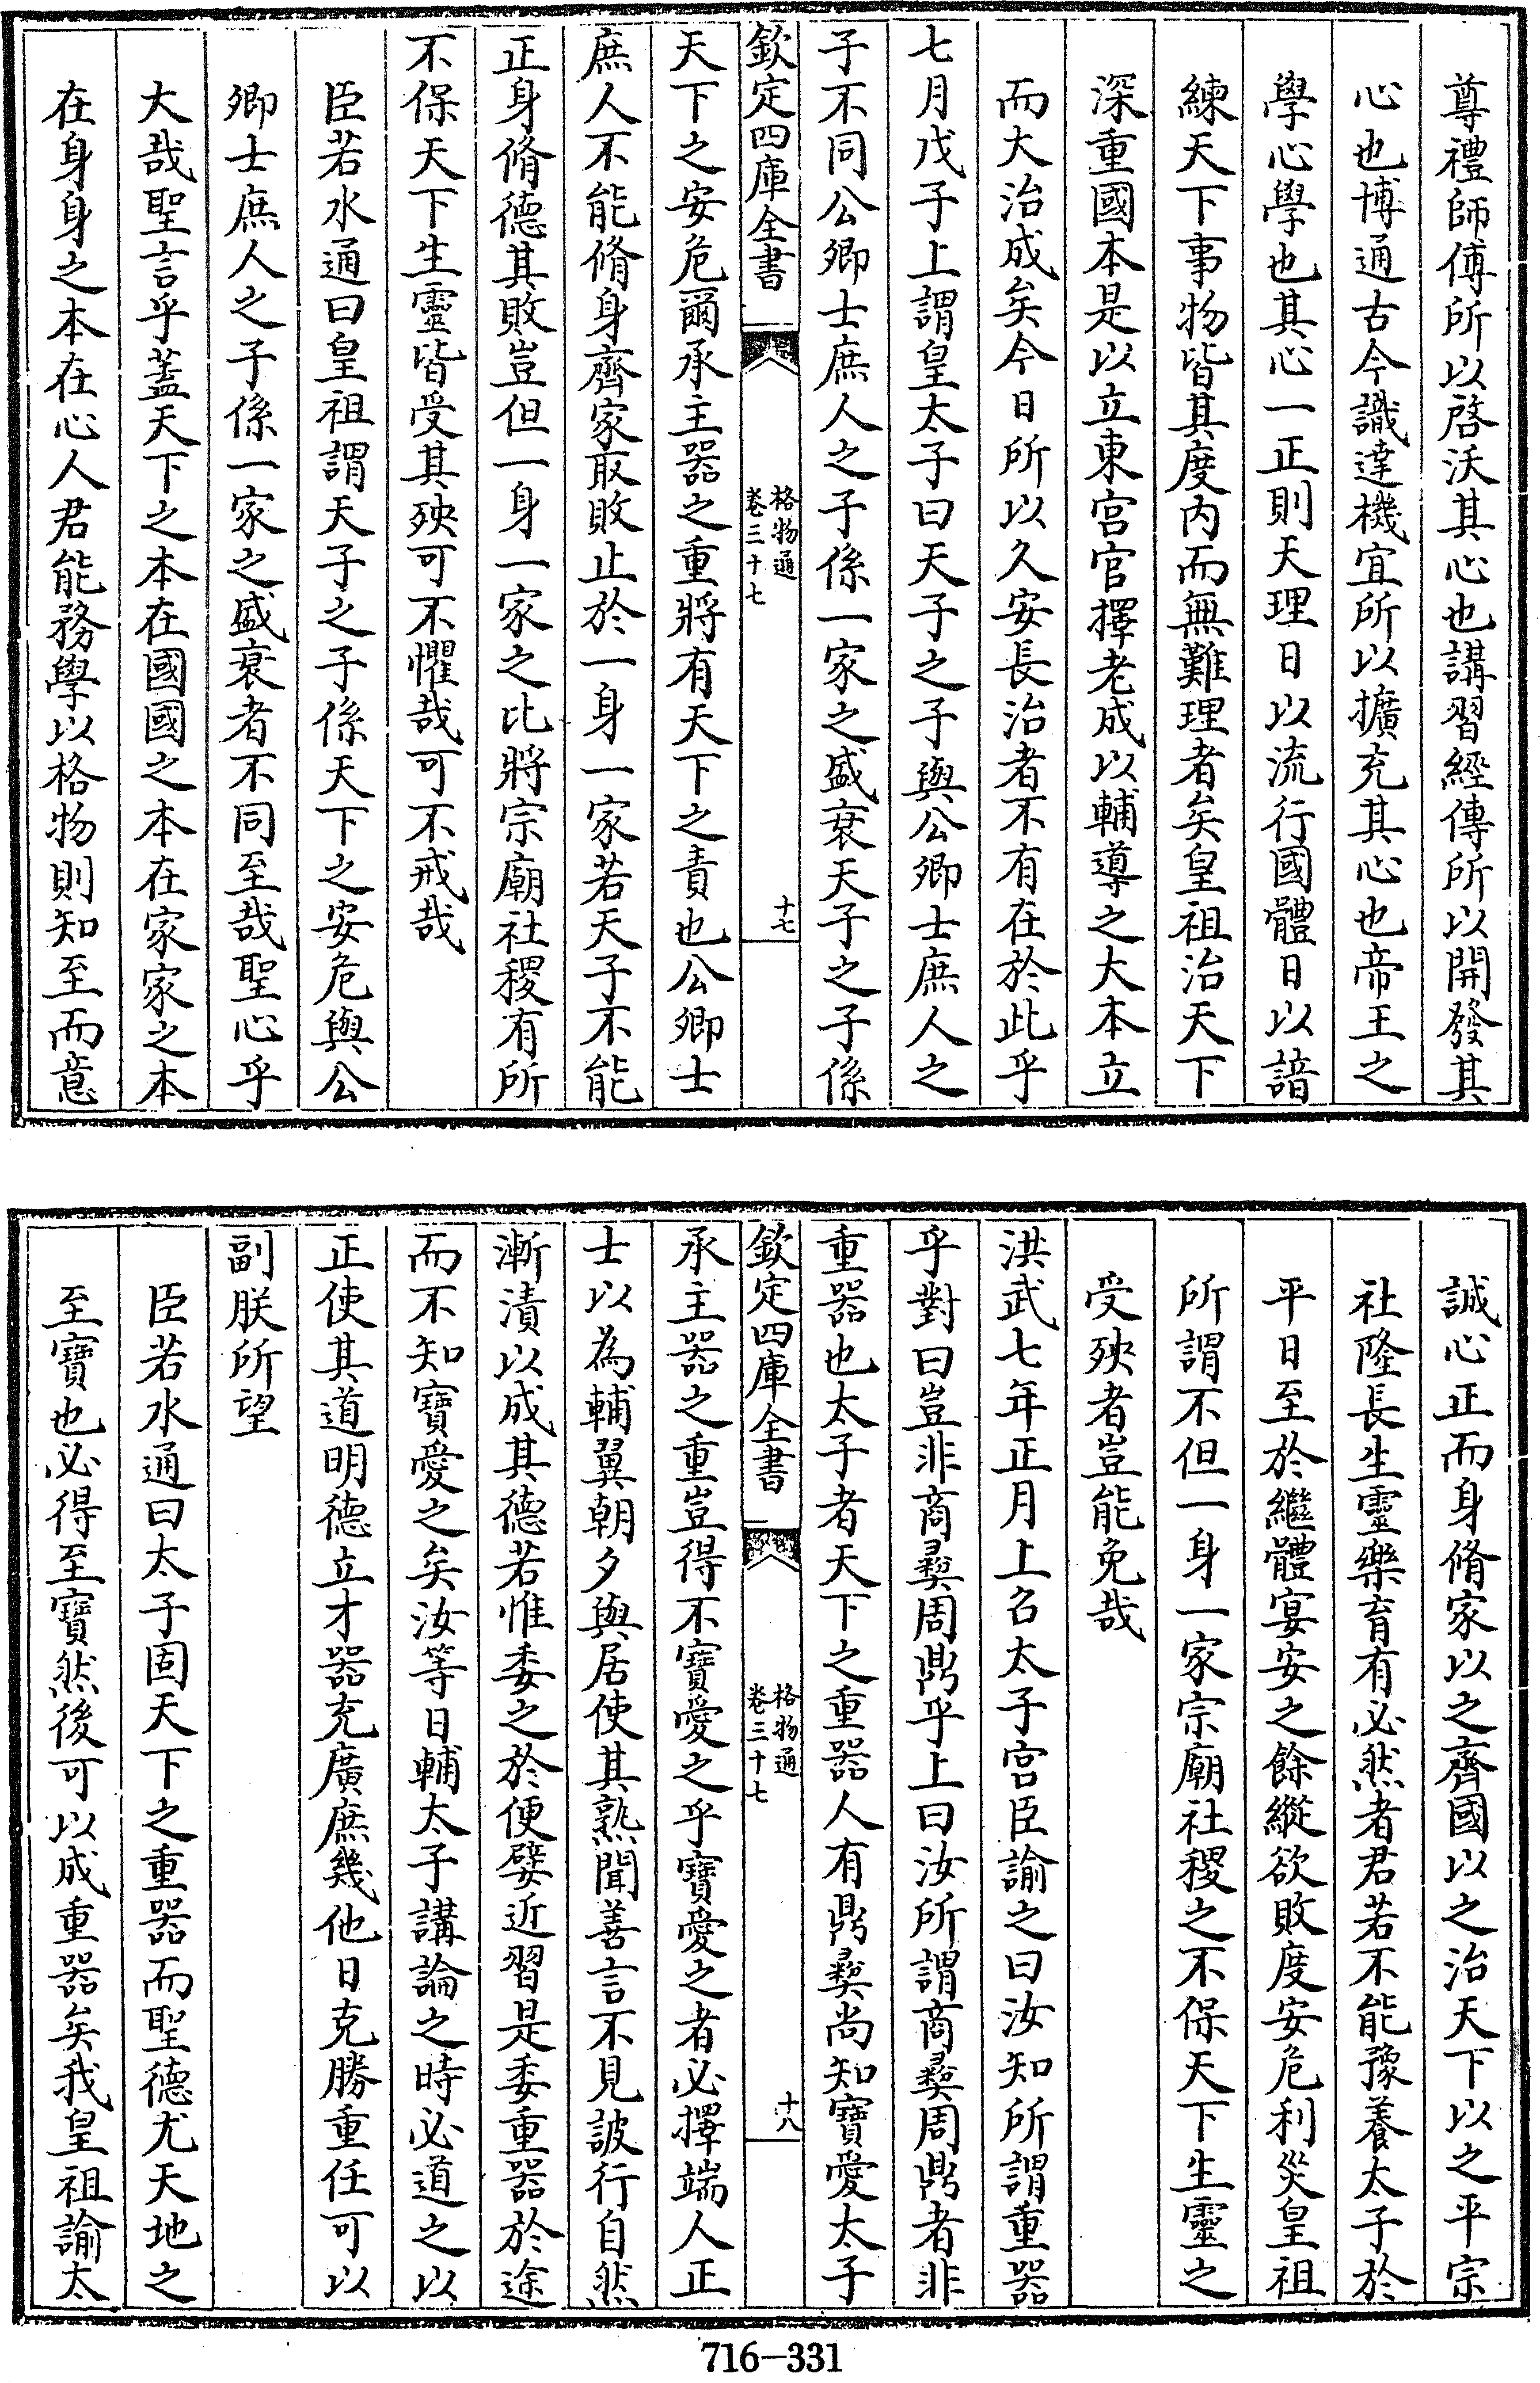 尊禮師傅所以啓沃其心也講習經傳所以開發其
心也博通古今識達機宜所以擴充其心也帝王之
學心學也其心一正則天理日以流行國體日以諳
練天下事物皆其度内而無難理者矣皇祖治天下
深重國本是以立東宮官擇老成以輔導之大本立
而大治成矣今日所以久安長治者不有在於此乎
七月戊子上謂皇太子曰天子之子與公卿士庶人之
子不同公卿士庶人之子係一家之盛衰天子之子係
欽定四庫全書
格物通
卷三十七
十七
天下之安危爾承主器之重將有天下之責也公卿士
庶人不能脩身齊家取敗止於一身一家若天子不能
正身脩德其敗豈但一身一家之比將宗廟社稷有所
不保天下生靈皆受其殃可不懼哉可不戒哉
臣若水通曰皇祖謂天子之子係天下之安危與公
卿士庶人之子係一家之盛衰者不同至哉聖心乎
大哉聖言乎蓋天下之本在國國之本在家家之本
在身身之本在心人君能務學以格物則知至而意
誠心正而身脩家以之齊國以之治天下以之平宗
社隆長生靈樂育有必然者君若不能豫養太子於
平日至於繼體宴安之餘縱欲敗度安危利災皇祖
所謂不但一身一家宗廟社稷之不保天下生靈之
受殃者豈能免哉
洪武七年正月上召太子宫臣諭之曰汝知所謂重器
乎對曰豈非商彛周鼎乎上曰汝所謂商彛周鼎者非
重器也太子者天下之重器人有鼎彛尚知寶愛太子
欽定四庫全書
格物通
卷三十七
十八
承主器之重豈得不寶愛之乎寶愛之者必擇端人正
士以為輔翼朝夕與居使其熟聞善言不見詖行自然
漸漬以成其德若惟委之於便嬖近習是委重器於途
而不知寶愛之矣汝等日輔太子講論之時必道之以
正使其道明德立才器充廣庶幾他日克勝重任可以
副朕所望
臣若水通曰太子固天下之重器而聖德尤天地之
至寶也必得至寶然後可以成重器矣我皇祖諭太
716-331